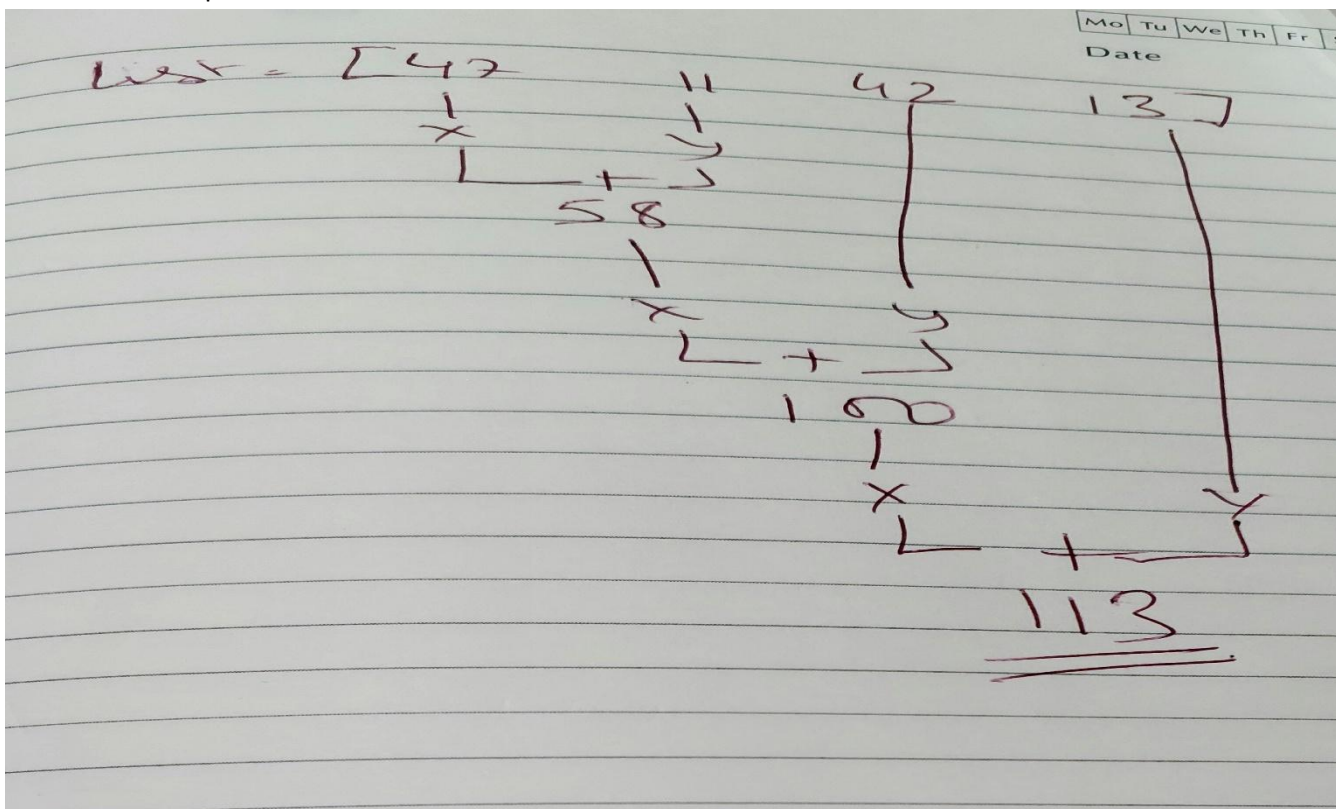 Mo Tu We Th Fr
Date
List = [47 11 42 13]
x y
+
58
x y
+
100
x y
+
113